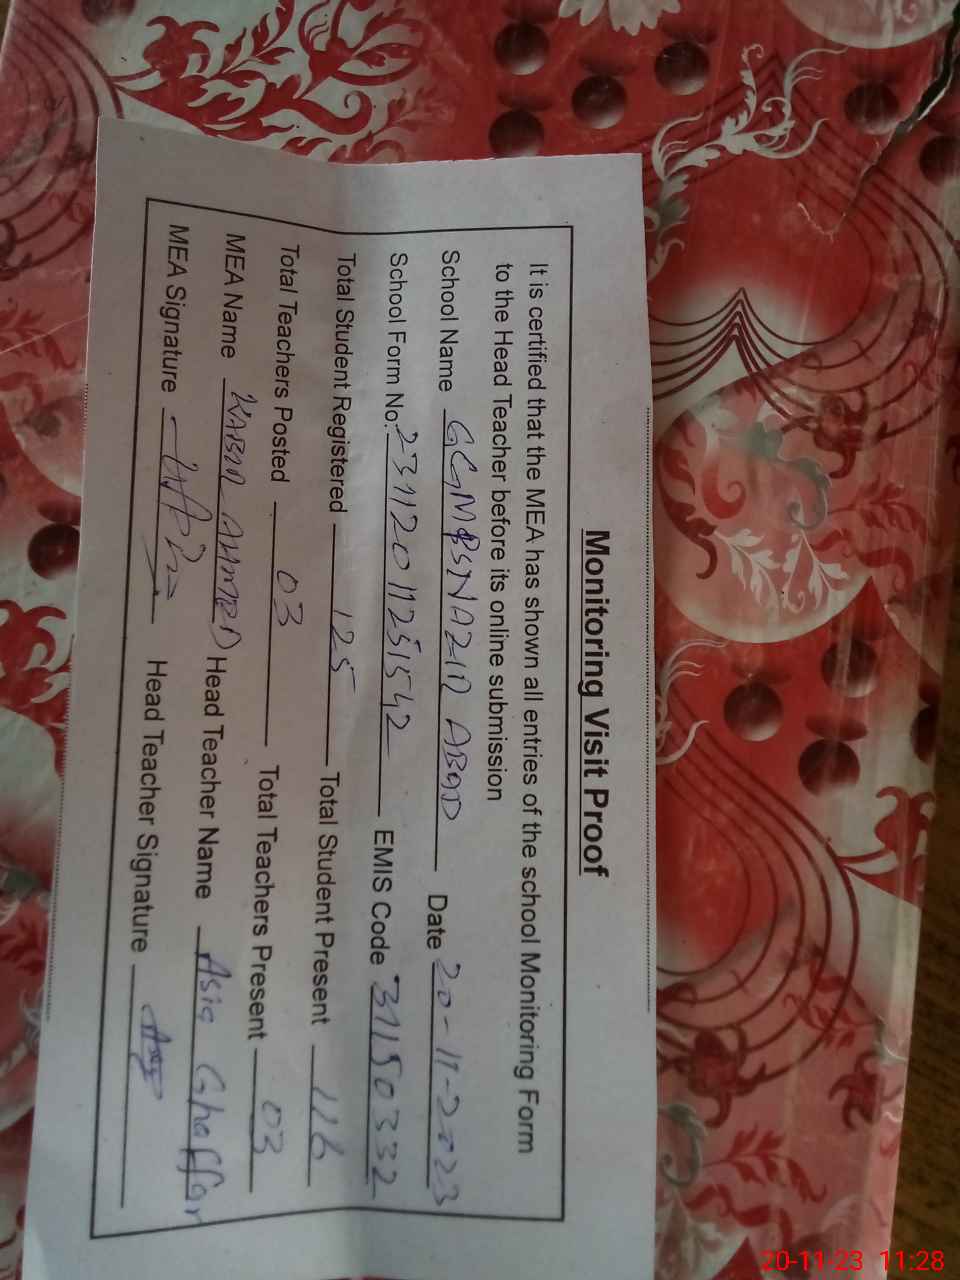 Monitoring Visit Proof
It is certified that the MEA has shown all entries of the school Monitoring Form
to the Head Teacher before its online submission
School Name GGMPS NAZIR ABAD Date 20-11-2023
School Form No. 23112011251542 EMIS Code 31150332
Total Student Registered 125 Total Student Present 116
Total Teachers Posted 03 Total Teachers Present 03
MEA Name KABIR AHMED Head Teacher Name Asia Ghaffar
MEA Signature Head Teacher Signature
20-11-23 11:28